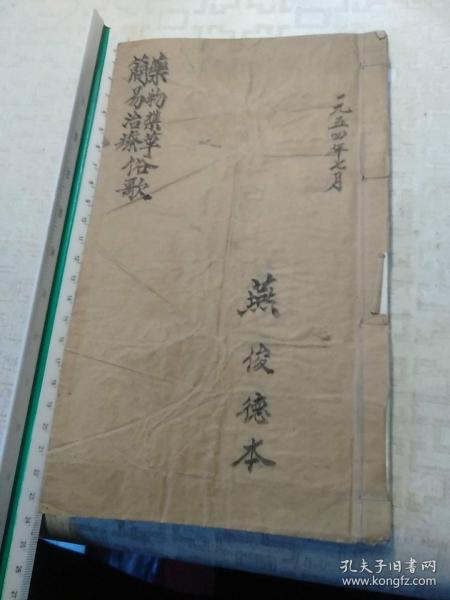 一九五四年七月
藥物襍草
簡易治療俗歌
燕俊德本
孔夫子旧书网
www.kongfz.com